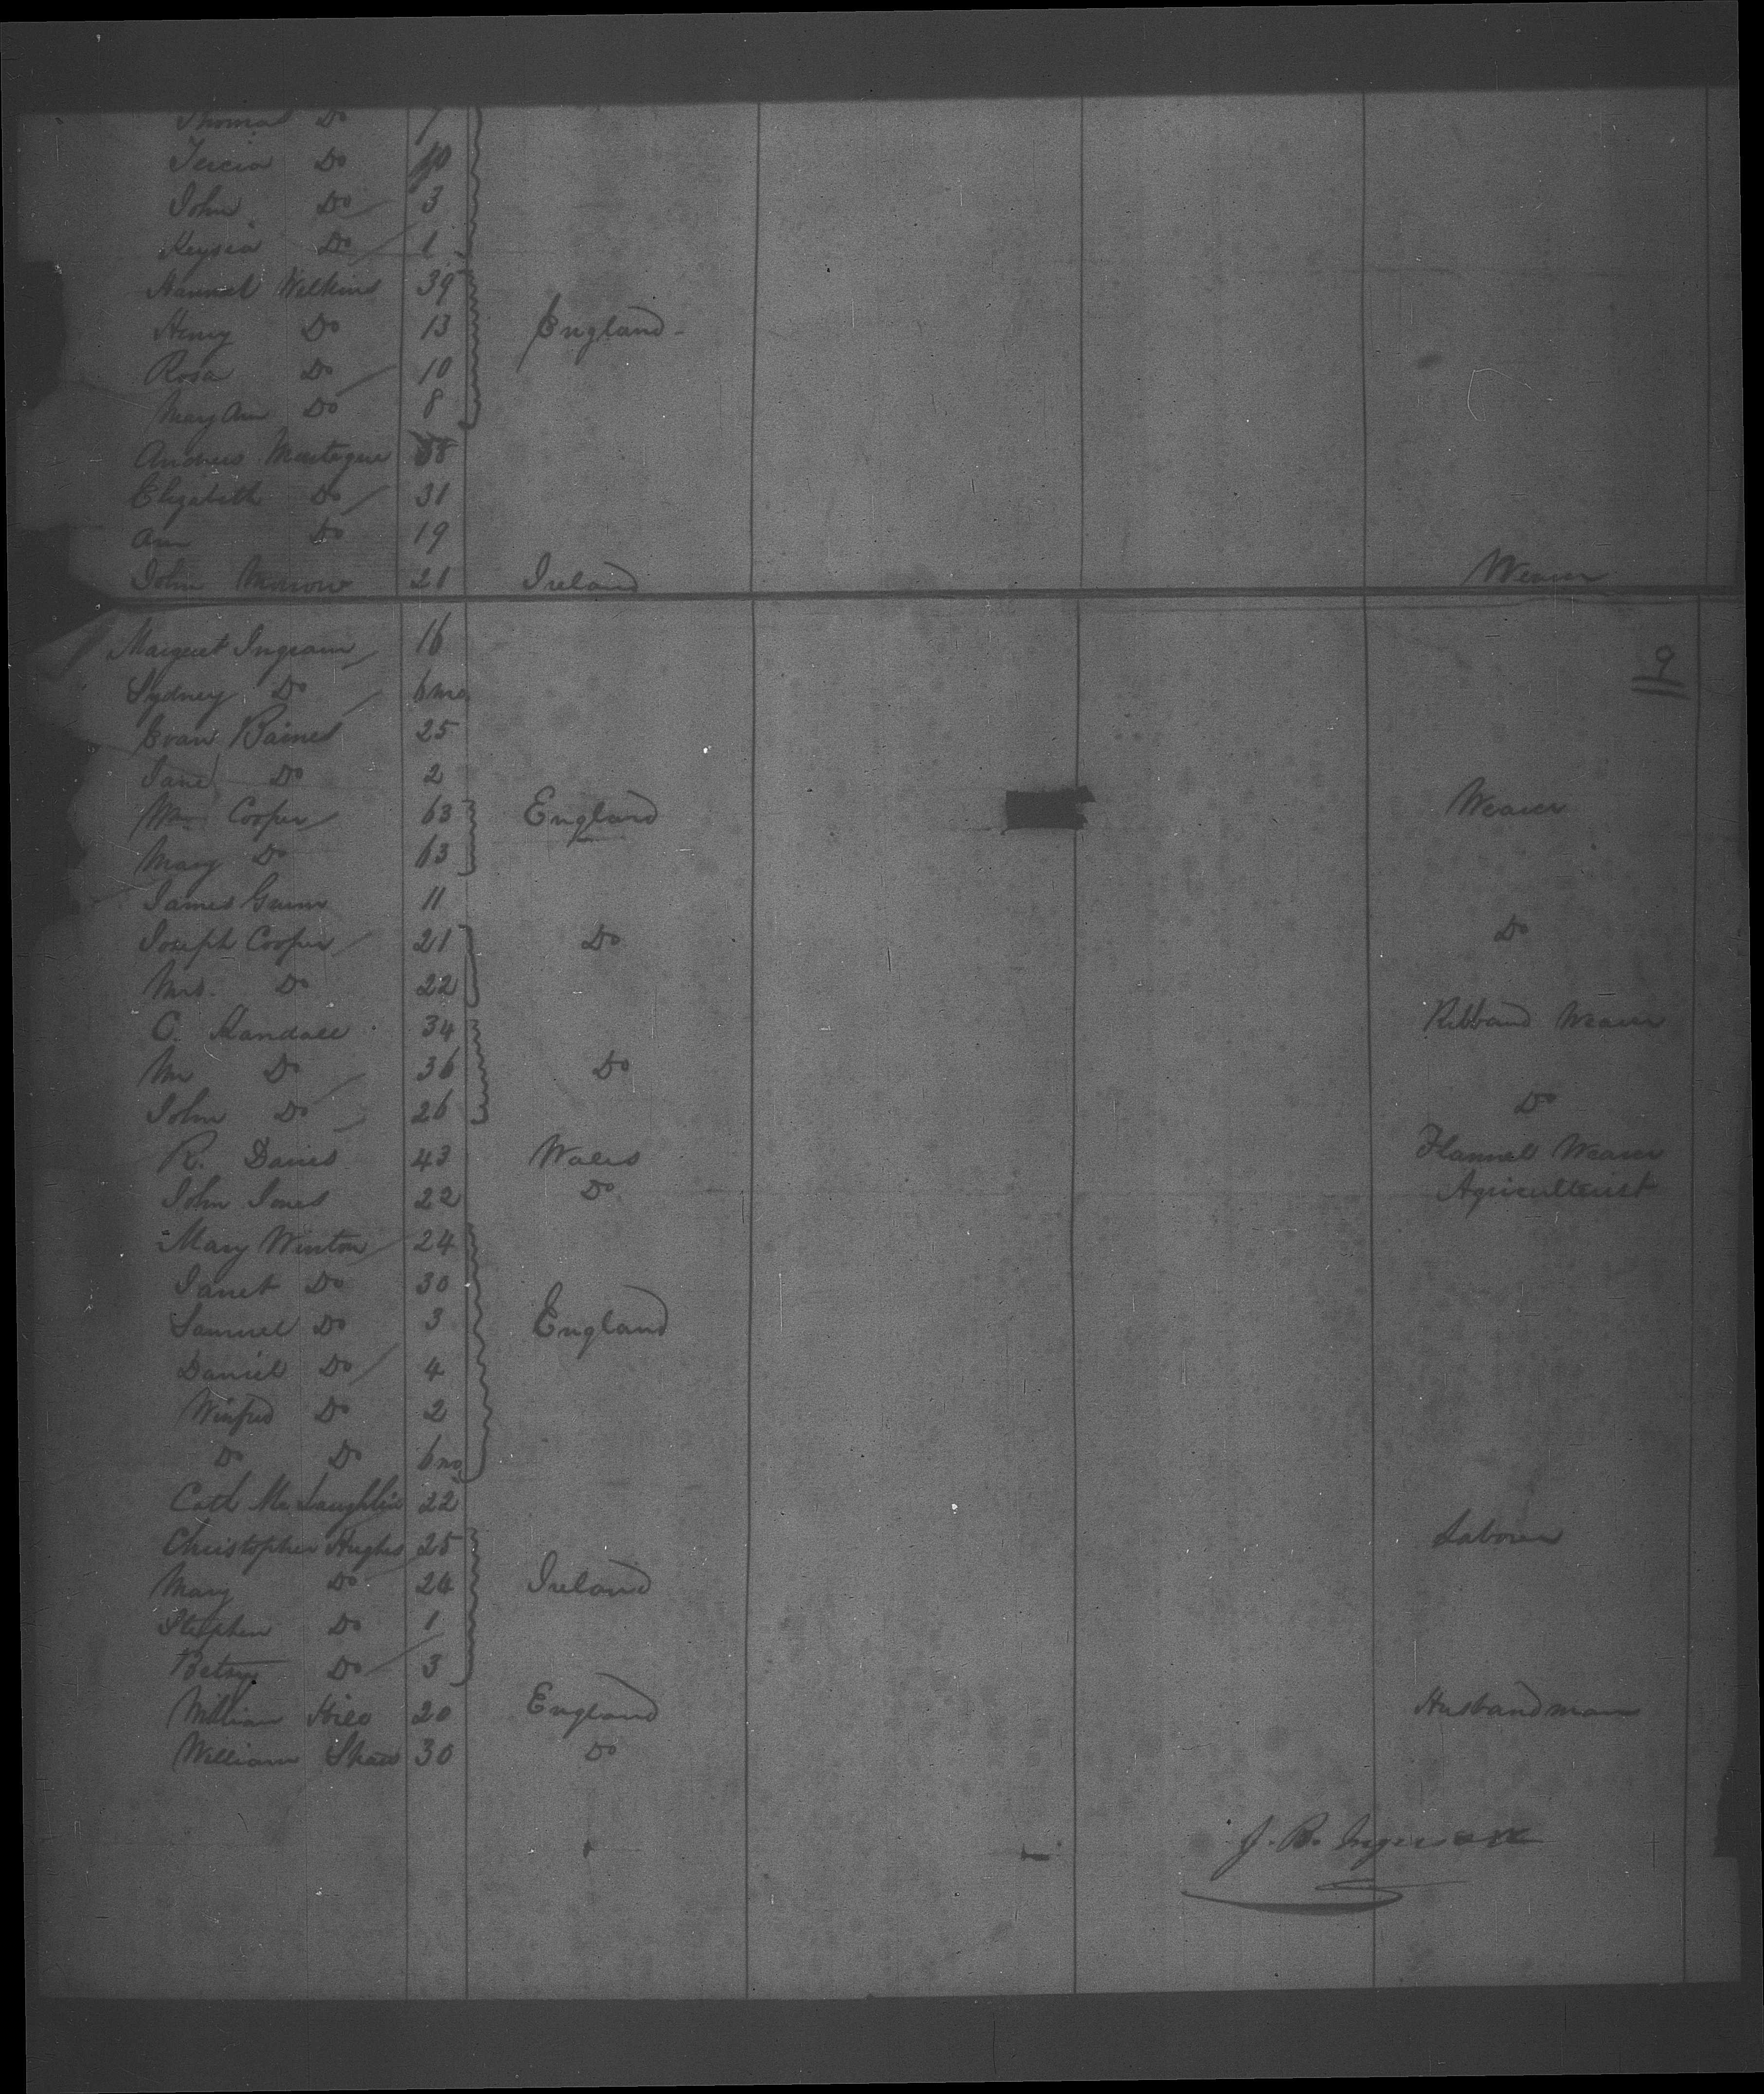 Thomas Do 7
Tercia Do 10
John Do 3
Keysia Do 1
Hannah Wilkins 39
Henry Do 13 England
Rosa Do 10
Mary Ann Do 8
Andrew 38
Elizabeth Do 31
Ann Do 19
John Morrow 21 Ireland Weaver
Margret Ingram 16
9
Sydney Do 6 mo
Evan Baines 25
Jane Do 2
Wm Cooper 63 England Weaver
Mary Do 63
James Gunn 11
Joseph Cooper 21 Do Do
Mrs. Do 22
C. Randall 34 Ribband Weaver
Wm Do 36 Do
John Do 26 Do
R. Davies 43 Wales Flannel Weaver
John Jones 22 Do Agriculturist
Mary Winton 24
Janet Do 30
Samuel Do 3 England
Daniel Do 4
Winfred Do 2
Do Do 6 mo
Cath McLaughlin 22
Christopher Hughes 25 Laborer
Mary Do 24 Ireland
Stephen Do 1
Betsy Do 3
William Hill 20 England Husbandman
William Shaw 30 Do
J. B. Ingersoll